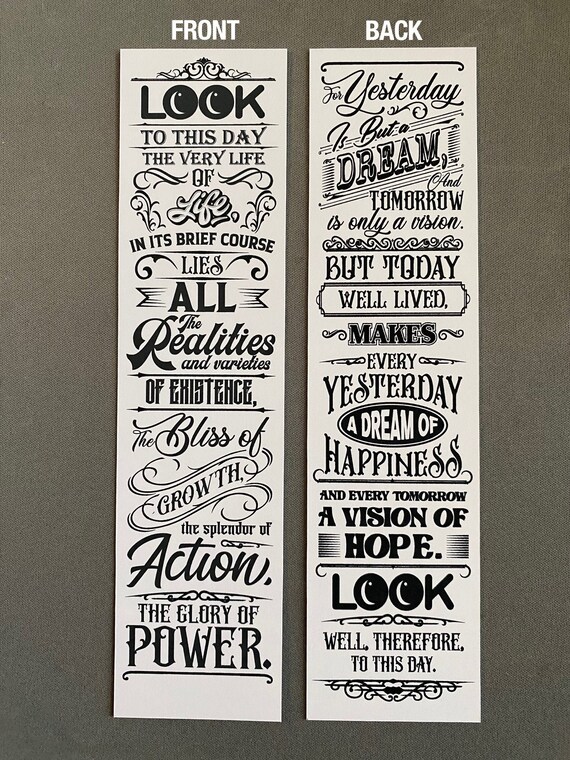 FRONT
LOOK
TO THIS DAY
THE VERY LIFE
OF
Life,
IN ITS BRIEF COURSE
LIES
ALL
The
Realities
and varieties
OF EXISTENCE,
The Bliss of
GROWTH,
the splendor of
Action,
THE GLORY OF
POWER.
BACK
For Yesterday
Is But a
DREAM,
And
TOMORROW
is only a vision.
BUT TODAY
WELL LIVED,
MAKES
EVERY
YESTERDAY
A DREAM OF
HAPPINESS
AND EVERY TOMORROW
A VISION OF
HOPE.
LOOK
WELL, THEREFORE,
TO THIS DAY.